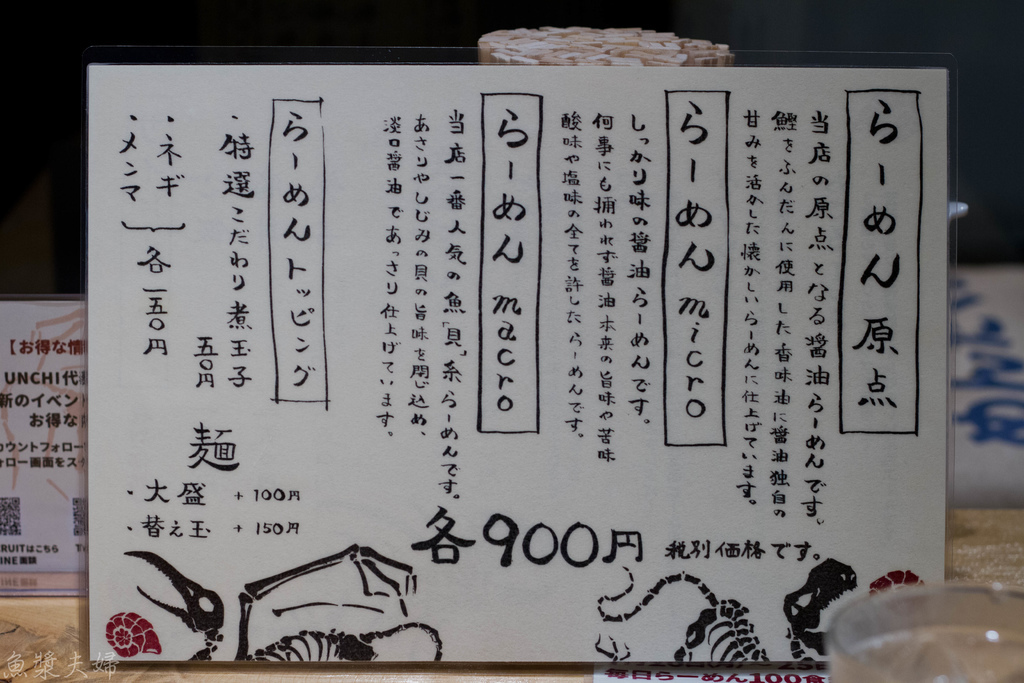 らーめん 原点
当店の原点となる醤油らーめんです。
鰹をふんだんに使用した香味油に醤油独自の
甘みを活かした懐かしいらーめんに仕上げています。
らーめん micro
しっかり味の醤油らーめんです。
何事にも捕われず醤油本来の旨味や苦味
酸味や塩味の全てを許したらーめんです。
らーめん macro
当店一番人気の魚「貝」系らーめんです。
あさりやしじみの貝の旨味を閉じ込め、
淡口醤油であっさり仕上げています。
らーめんトッピング
・特選こだわり煮玉子
五〇円
・ネギ
・メンマ
各一五〇円
麺
・大盛 +100円
・替え玉 +150円
各900円 税別価格です。
【お得な情
UNCHI代
新のイベン
お得な
カウントフォロー
ォロー画面をス
RUITはこちら
INE面談
毎日らーめん100食
魚漿夫婦